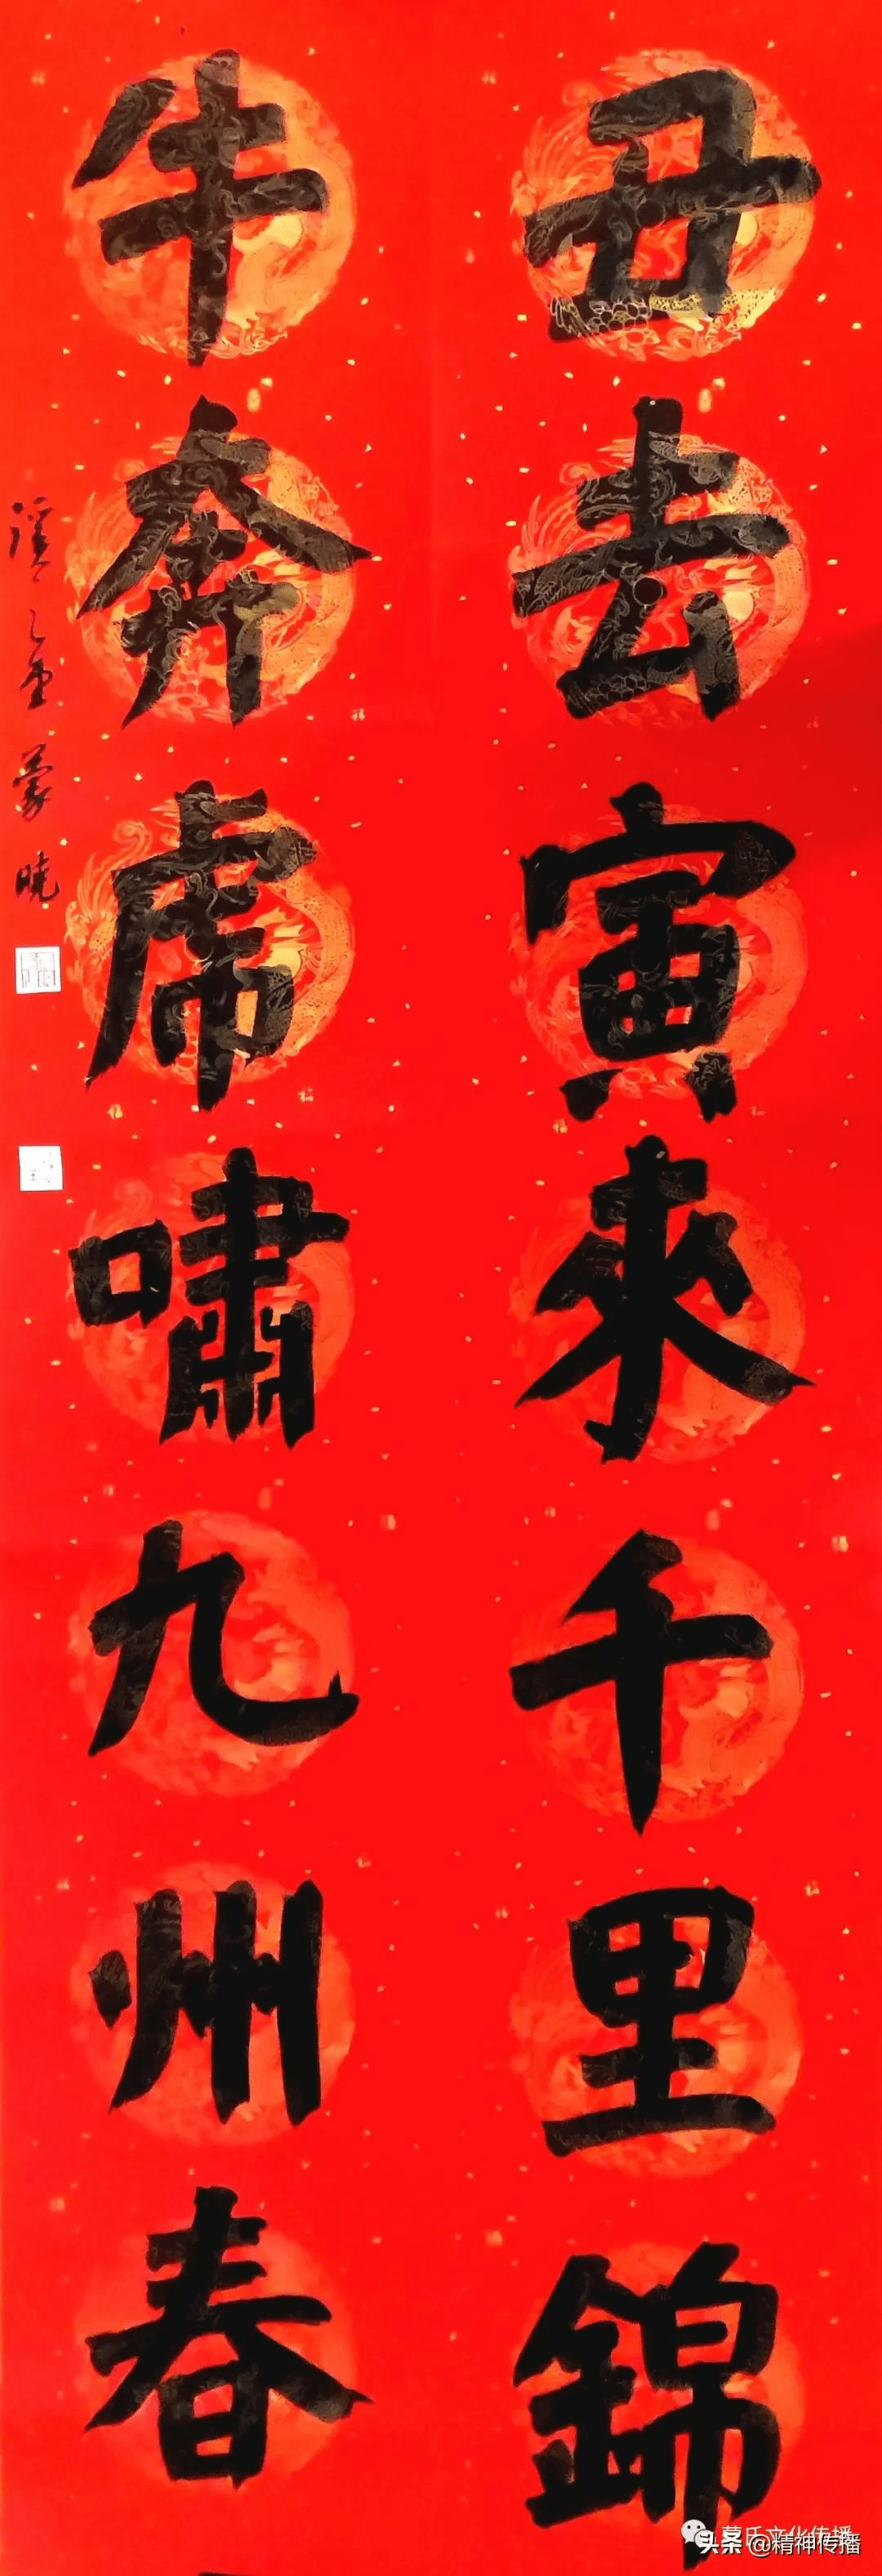 丑去寅來千里錦
牛奔虎嘯九州春
蒙曉
蒙氏文化传播
头条 @精神传播